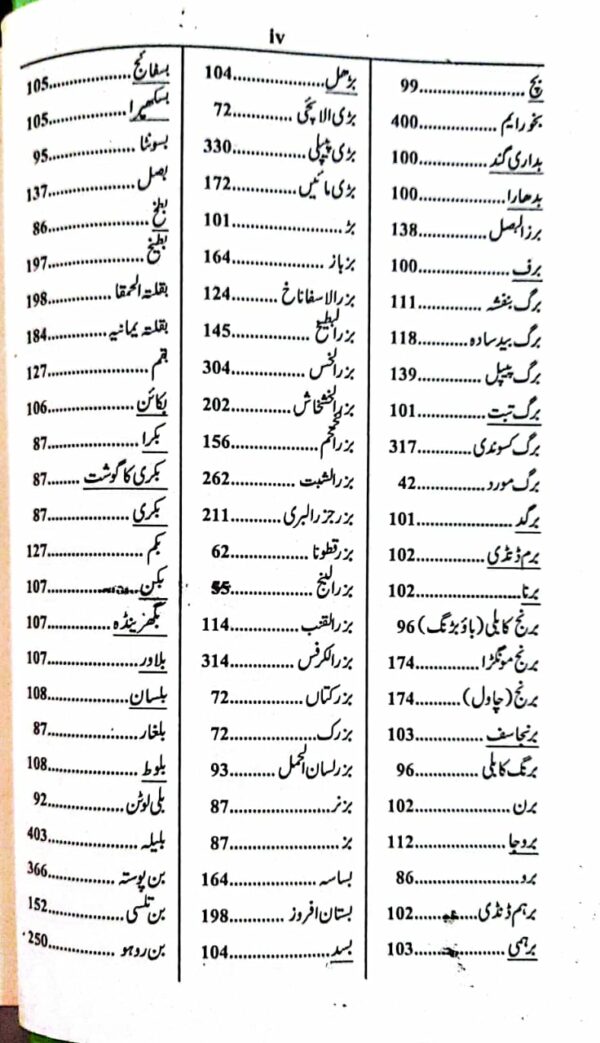 iv
بچ......................99
بخور ایم................400
بداری گند..............100
بدھارا..................100
برز البصل..............138
برف....................100
برگ بنفشہ..............111
برگ بید سادہ...........118
برگ پیپل...............139
برگ تبت...............101
برگ کسوندی...........317
برگ مورد...............42
برگد...................101
برم ڈنڈی...............102
برنا....................102
برنج کابلی (باؤبڑنگ) 96
برنج مونگڑا.............174
برنج (چاول)...........174
برنجاسف...............103
برنگ کابلی..............96
برن....................102
بروجا..................112
برو.....................86
برہم ڈنڈی..............102
برہمی..................103
بڑھل..................104
بڑی الائچی..............72
بڑی پیپلی..............330
بڑی مائیں..............172
بڑ.....................101
بزباز...................164
بزر الاسفاناخ...........124
بزر البطیخ..............145
بزر الخس...............304
بزر الخشخاش...........202
بزر الخم................156
بزر الشبت..............262
بزر جزر البری...........211
بزر قطونا...............62
بزر البنج................55
بزر القنب...............114
بزر الکرفس.............314
بزر کتاں................72
بزرک...................72
بزر لسان الحمل..........93
بز نر....................87
بز......................87
بساسہ..................164
بستان افروز............198
بسد....................104
بسفائج.................105
بسکھپرا................105
بسونٹا..................95
بصل...................137
بطخ....................86
بطیخ...................197
بقلتہ الحمقا.............198
بقلتہ یمانیہ.............184
بقم....................127
بکائن..................106
بکرا....................87
بکری کا گوشت..........87
بکری...................87
بکم....................127
بکن...................107
بگھرینڈہ...............107
بلاور...................107
بلسان..................108
بلغار...................87
بلوط...................108
بلی لوٹن................92
بلیلہ...................403
بن پوستہ...............366
بن تلسی................152
بن روہو................250